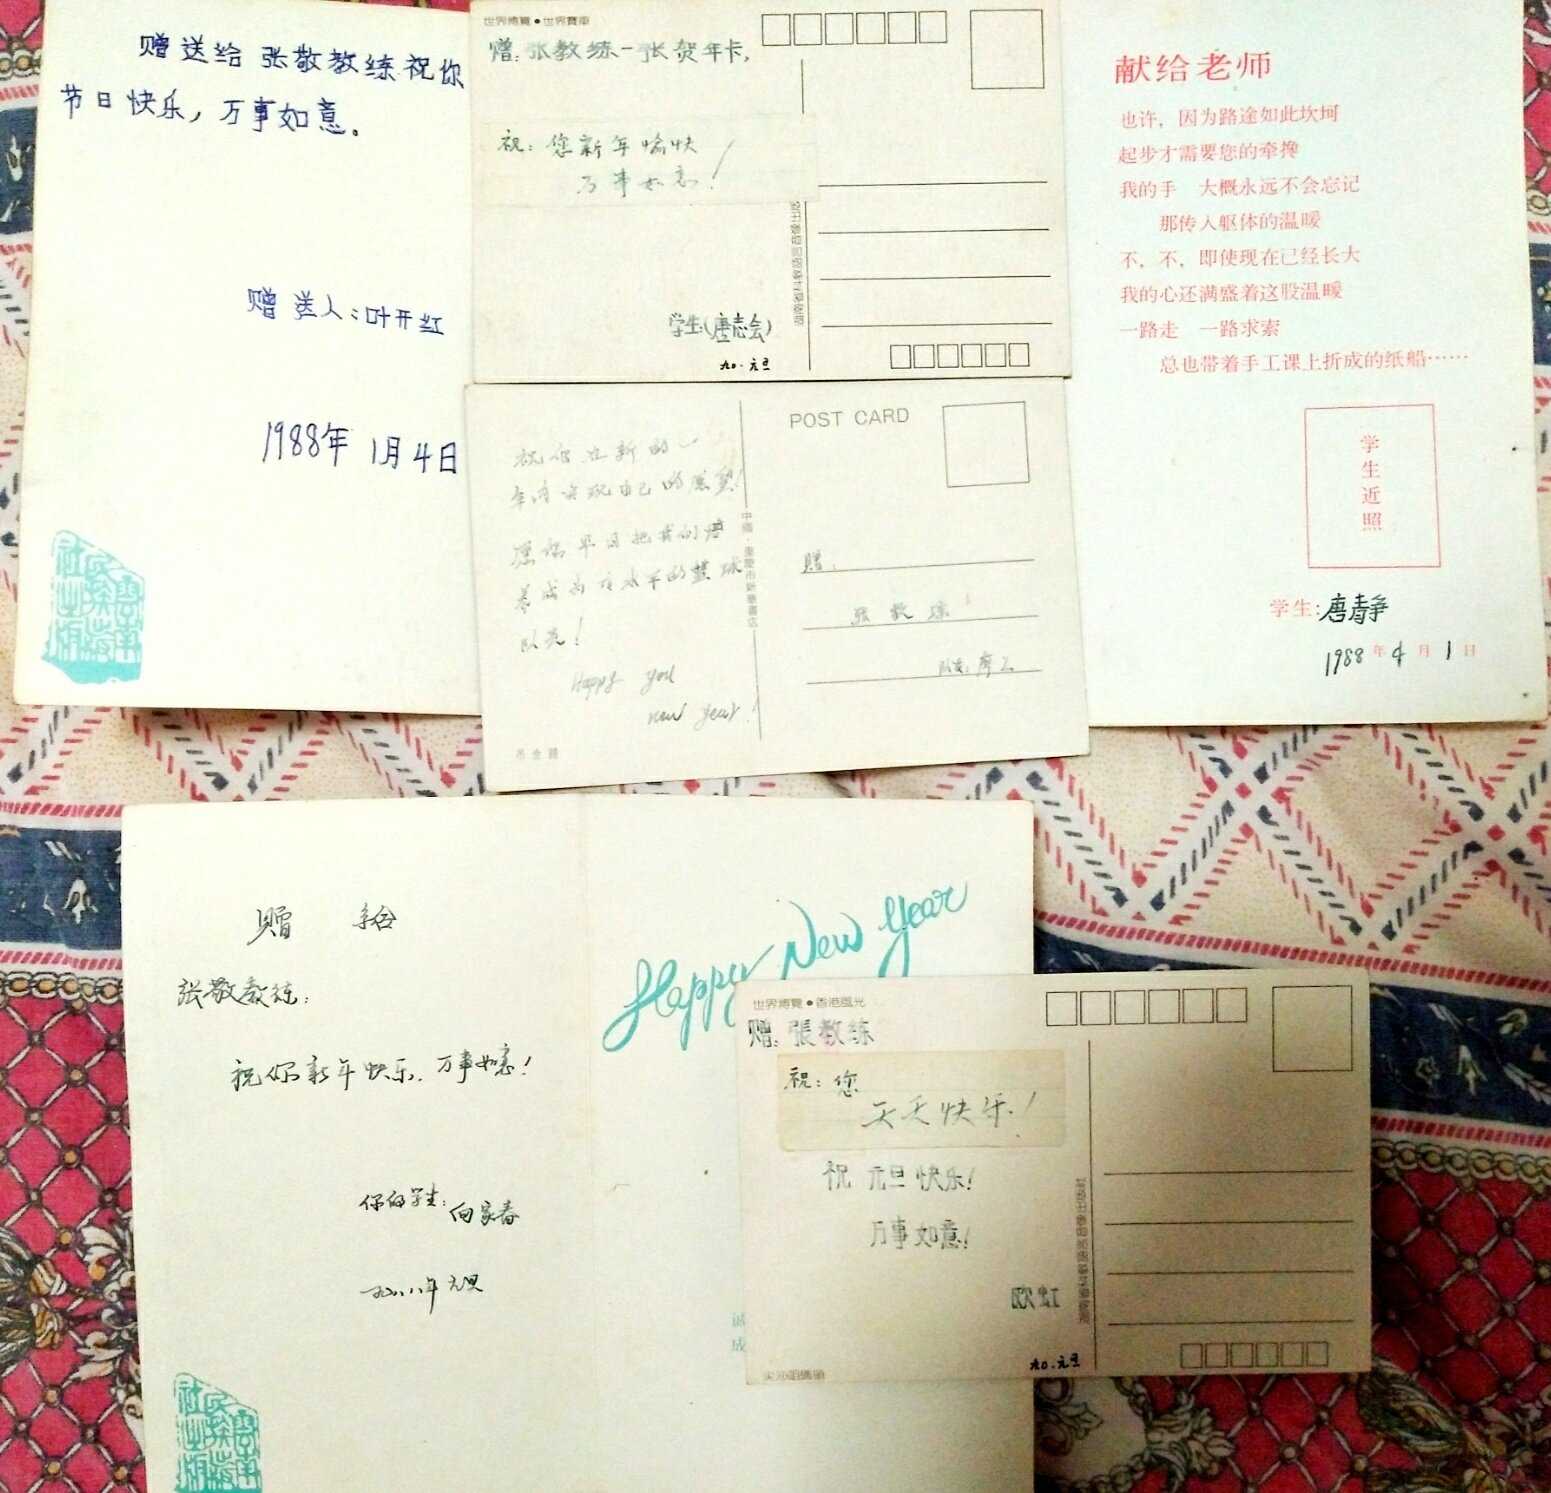 赠送给 张敬教练祝你
节日快乐，万事如意。
赠送人：叶开红
1988年 1月4日
世界博覽●世界賽車
赠：张教练一张贺年卡，
祝：您新年愉快
万事如意！
学生：(唐志会)
九〇.元旦
献给老师
也许，因为路途如此坎坷
起步才需要您的牵搀
我的手 大概永远不会忘记
那传入躯体的温暖
不，不，即使现在已经长大
我的心还满盛着这股温暖
一路走 一路求索
总也带着手工课上折成的纸船……
学生近照
学生：唐静
1988年4月1日
POST CARD
祝你在新的一
年内实现自己的愿望！
愿你早日把我们培
养成为有水平的篮球
队员！
Happy you
new year！
中國·重慶市新華書店
吊金鐘
赠：
张教练
队员：廖
赠 给
张敬教练：
祝你新年快乐，万事如意！
你的学生：向家春
一九八八年元旦
Happy New Year
诚
成
世界博覽●香港風光
赠：張教练
祝：您
天天快乐！
祝 元旦快乐！
万事如意！
欧虹
九〇.元旦
尖沙咀碼頭